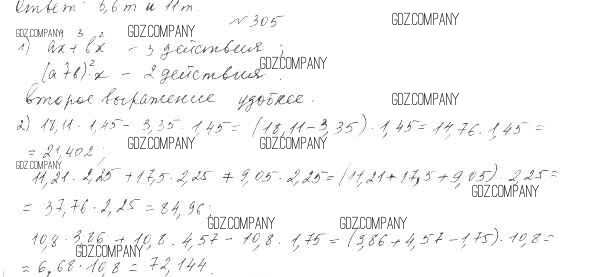 Ответ: 5,6 м и 11 м.
№305
GDZ.COMPANY
GDZ.COMPANY
GDZ.COMPANY
1) ax + bx - 3 действия;
1 3 2
(a+b)·x - 2 действия.
1 2
GDZ.COMPANY
второе выражение удобнее.
GDZ.COMPANY
2) 18,11 · 1,45 - 3,35 · 1,45 = (18,11 - 3,35) · 1,45 = 14,76 · 1,45 =
= 21,402;
GDZ.COMPANY
GDZ.COMPANY
GDZ.COMPANY
11,21 · 2,25 + 17,5 · 2,25 + 9,05 · 2,25 = (11,21 + 17,5 + 9,05) · 2,25 =
GDZ.COMPANY
= 37,76 · 2,25 = 84,96;
GDZ.COMPANY
GDZ.COMPANY
10,8 · 3,86 + 10,8 · 4,57 - 10,8 · 1,75 = (3,86 + 4,57 - 1,75) · 10,8 =
GDZ.COMPANY
= 6,68 · 10,8 = 72,144.